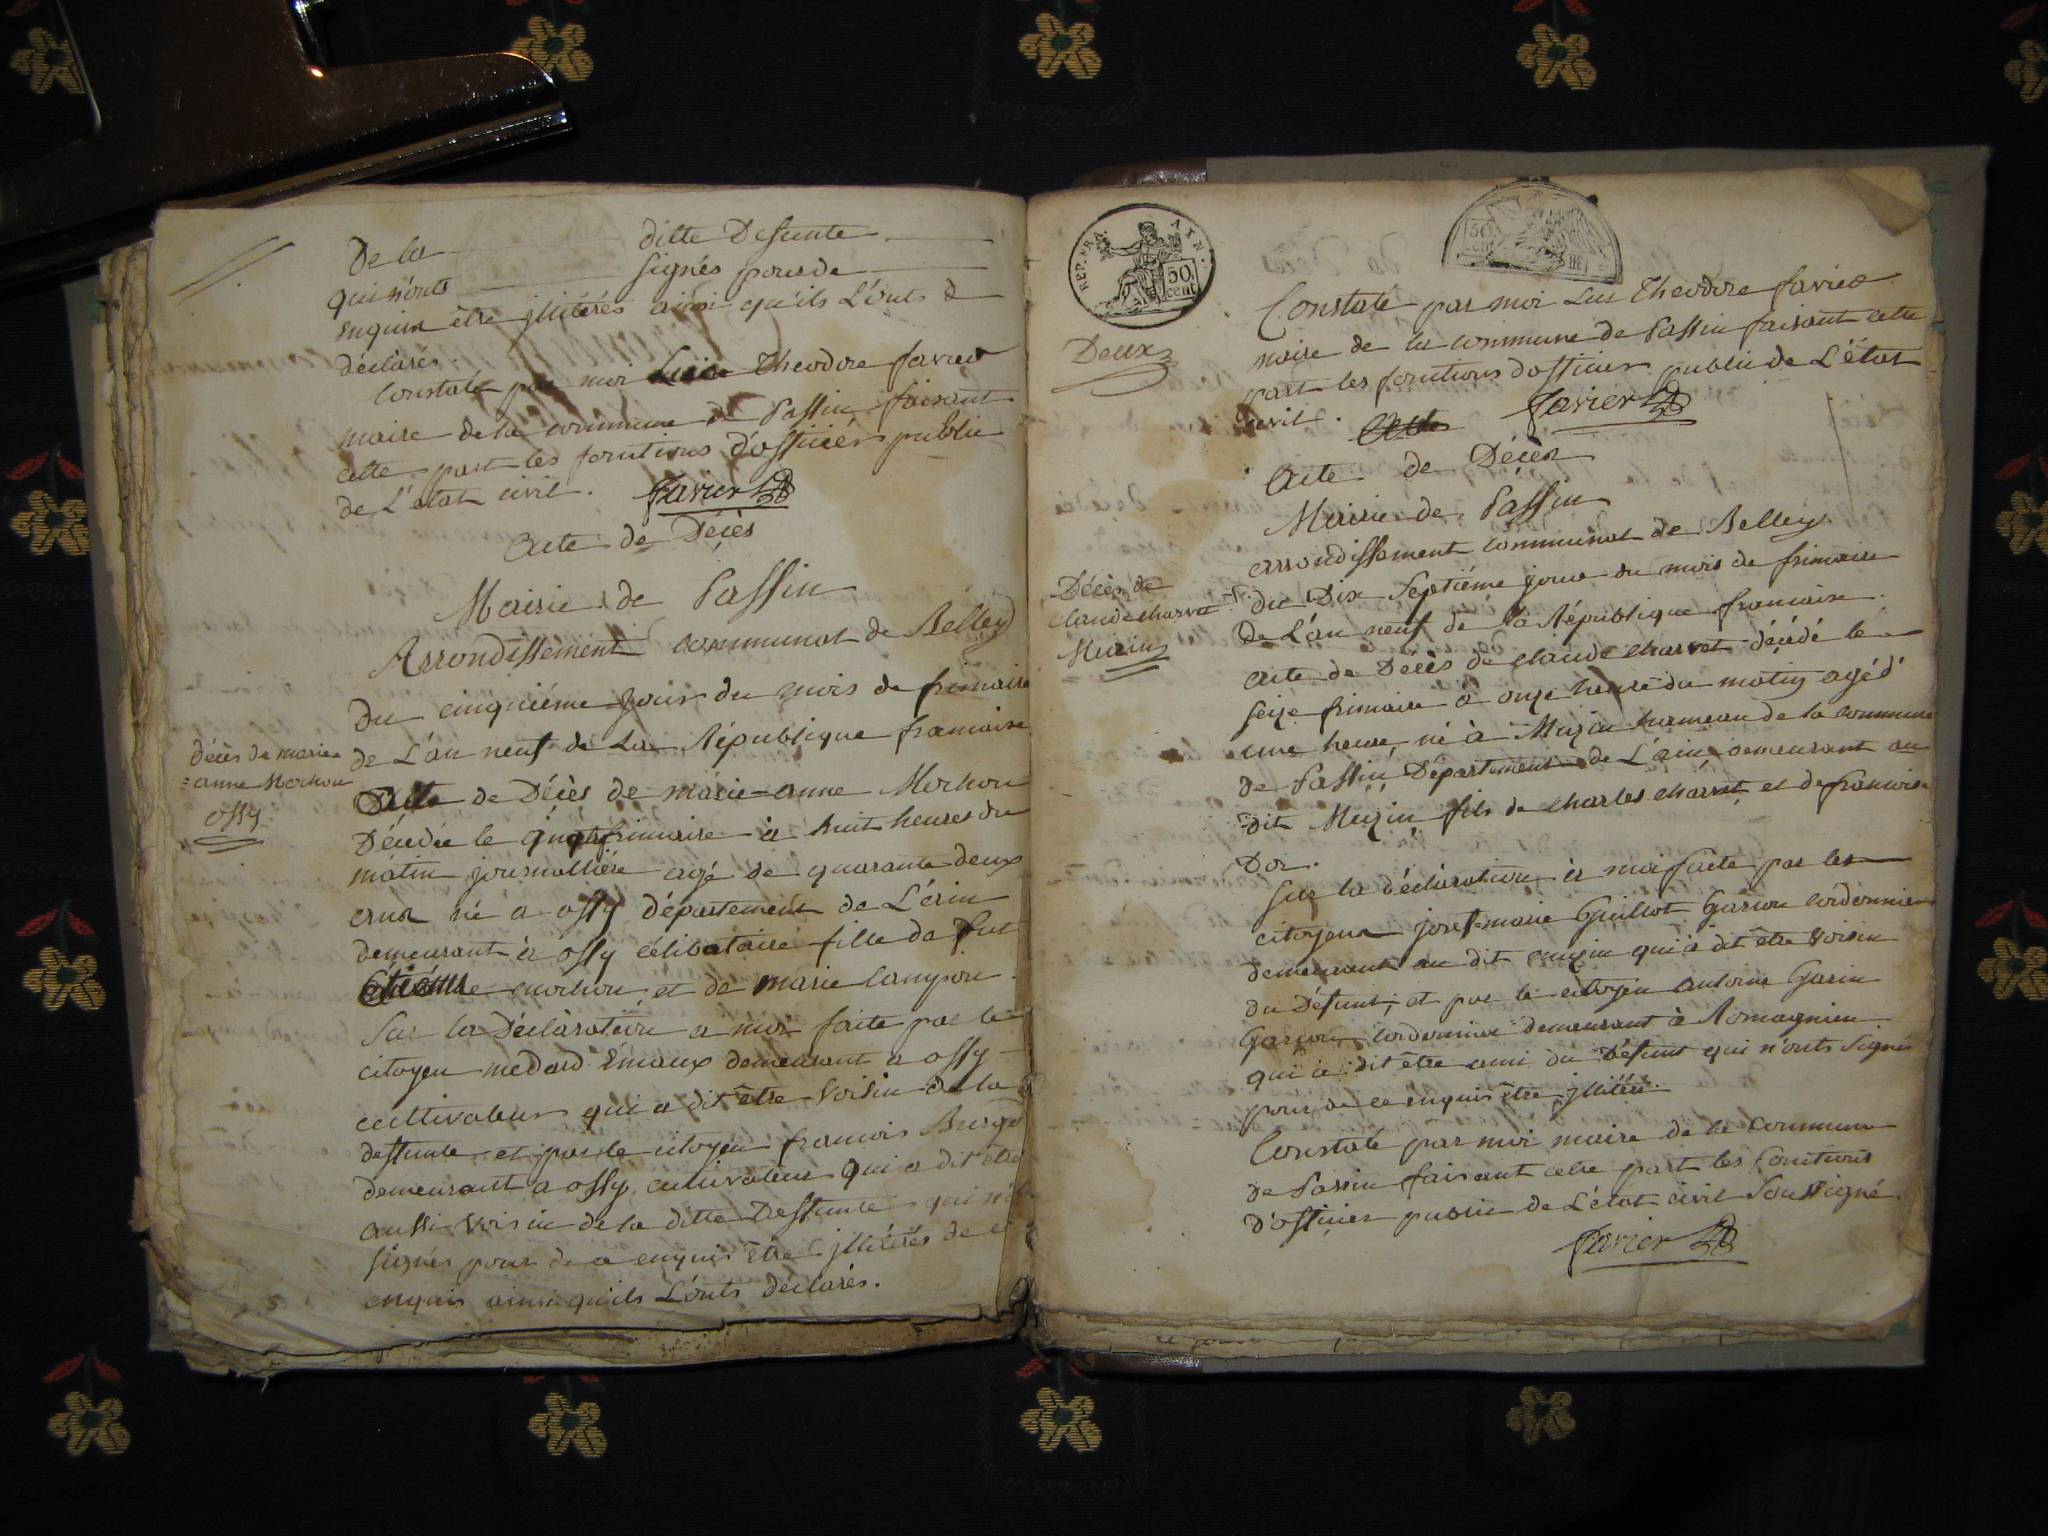 De la ditte Defunte
qui n'onts signés pour de
enquis être jllitérés ainsi qu'ils L'onts d
déclarés.
Constaté par moi Theodore favier
maire de la commune de Passin faisant
cette part les fonctions d'officiér public
de L'état civil. Favier
Acte de Décès
Mairie de Passin
Arrondissément communal de Belley
Du cinquiéme jour du mois de frimaire
de L'an neuf de La République francaise
décès de marie
=anne Mochon
ossy
Acte de Décès de marie=anne Mochon
Décédée le quatre frimaire à huit heures du
matin journalliére agé de quarante deux
ans né a ossy département de L'ain
demeurant à ossy célibataire fille de fut
Etienne mochon et de marie
Sur la Déclaration a moi faite par le
citoyen medard demeurant a ossy
cultivateur qui a dit être voisin de la
deffunte et par le citoyen francois
demeurant a ossy cultivateur qui a dit être
aussi voisin de la ditte Deffunte qui n'o
signés pour de ce enquis être jllitérés de c
enquis ainsi qu'ils L'onts déclarés.
REP. FRA. AYN.
50
cent
50
cent
Deux
Constaté par moi Luc Theodore favier
maire de la commune de Passin faisant cette
part les fonctions d'officier public de L'état
civil. Favier
Acte de Décès
Mairie de Passin
arrondissement communal de Belley
Décès de
claude charvet
Muzin
du Dix Septiéme jour du mois de frimaire
de L'an neuf de la République francaise.
acte de Décès de claude charvet décédé le
seize frimaire à onze heure du matin agé d'
une heure, né à Muzin hameau de la commune
de Passin Département de L'ain demeurant au
dit Muzin fils de charles charvet et de francoise
Dor.
Sur la déclaration à moi faite par les
citoyens josef=marie Guillot Garcon cordonnier
demeurant au dit muzin qui a dit être voisin
du Défunt, et par le citoyen antoine Garin
Garcon cordonnier demeurant à Romagnieu
qui a dit être ami du Défunt qui n'onts signés
pour de ce enquis être jllitéré.
Constaté par moi maire de la commune
de Passin faisant cette part les fonctions
D'officier public de L'état civil soussigné.
Favier